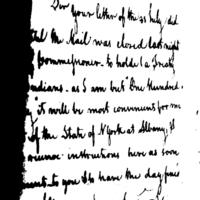 Sir Your letter of the 31 July, did
the Mail was closed last night
Commissioner to hold a Treaty
Indians. as I am but One Hundred.
it will be most convenient for me
of the State of N York at Albany, If
instructions here as soon
to you to have the day